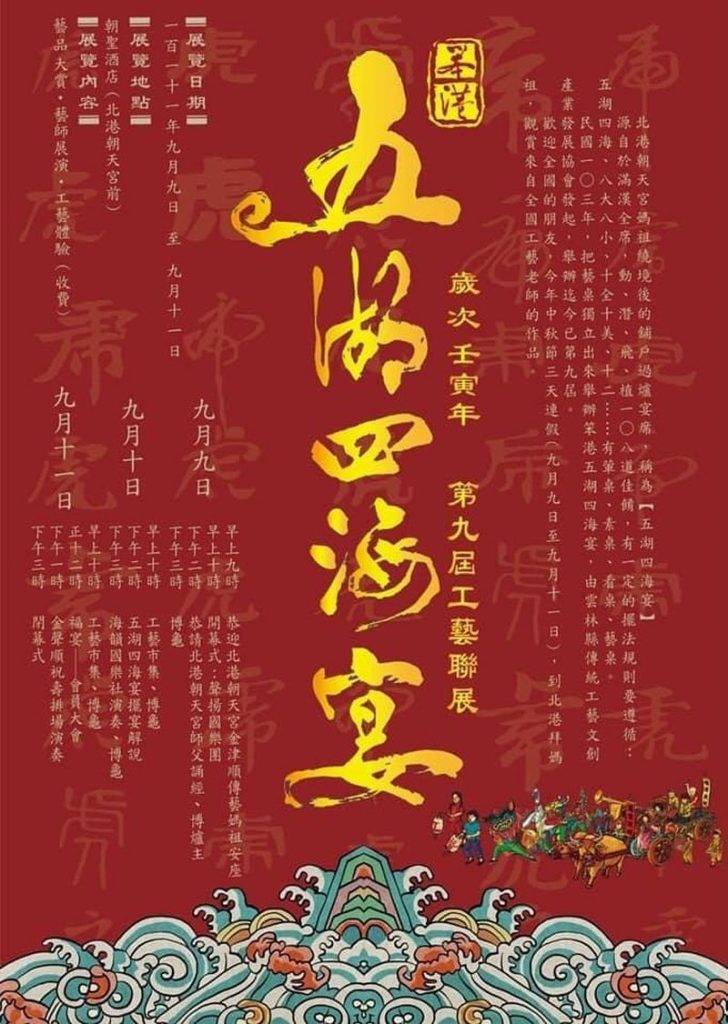 笨港
五湖四海宴
歲次壬寅年 第九屆工藝聯展
北港朝天宮媽祖繞境後的舖戶過爐宴席，稱為【五湖四海宴】
源自於滿漢全席，動、潛、飛、植一〇八道佳餚，有一定的擺法規則要遵循：
五湖四海、八大八小、十全十美、十二……有葷桌、素桌、看桌、藝桌。
民國一〇三年，把藝桌獨立出來舉辦笨港五湖四海宴，由雲林縣傳統工藝文創
產業發展協會發起，舉辦迄今已第九屆。
歡迎全國的朋友，今年中秋節三天連假（九月九日至九月十一日），到北港拜媽
祖，觀賞來自全國工藝老師的作品
展覽日期
一百一十一年九月九日 至 九月十一日
展覽地點
朝聖酒店（北港朝天宮前）
展覽內容
藝品大賞·藝師展演·工藝體驗（收費）
九月九日
早上九時 恭迎北港朝天宮金津順傳藝媽祖安座
早上十時 開幕式：聲揚國樂團
下午二時 恭請北港朝天宮師父誦經、博爐主
下午三時 博龜
九月十日
早上十時 工藝市集、博龜
下午二時 五湖四海宴擺宴解說
下午三時 海韻國樂社演奏、博龜
九月十一日
早上十時 工藝市集、博龜
正十二時 福宴——會員大會
下午一時 金聲順祝壽排場演奏
下午三時 閉幕式